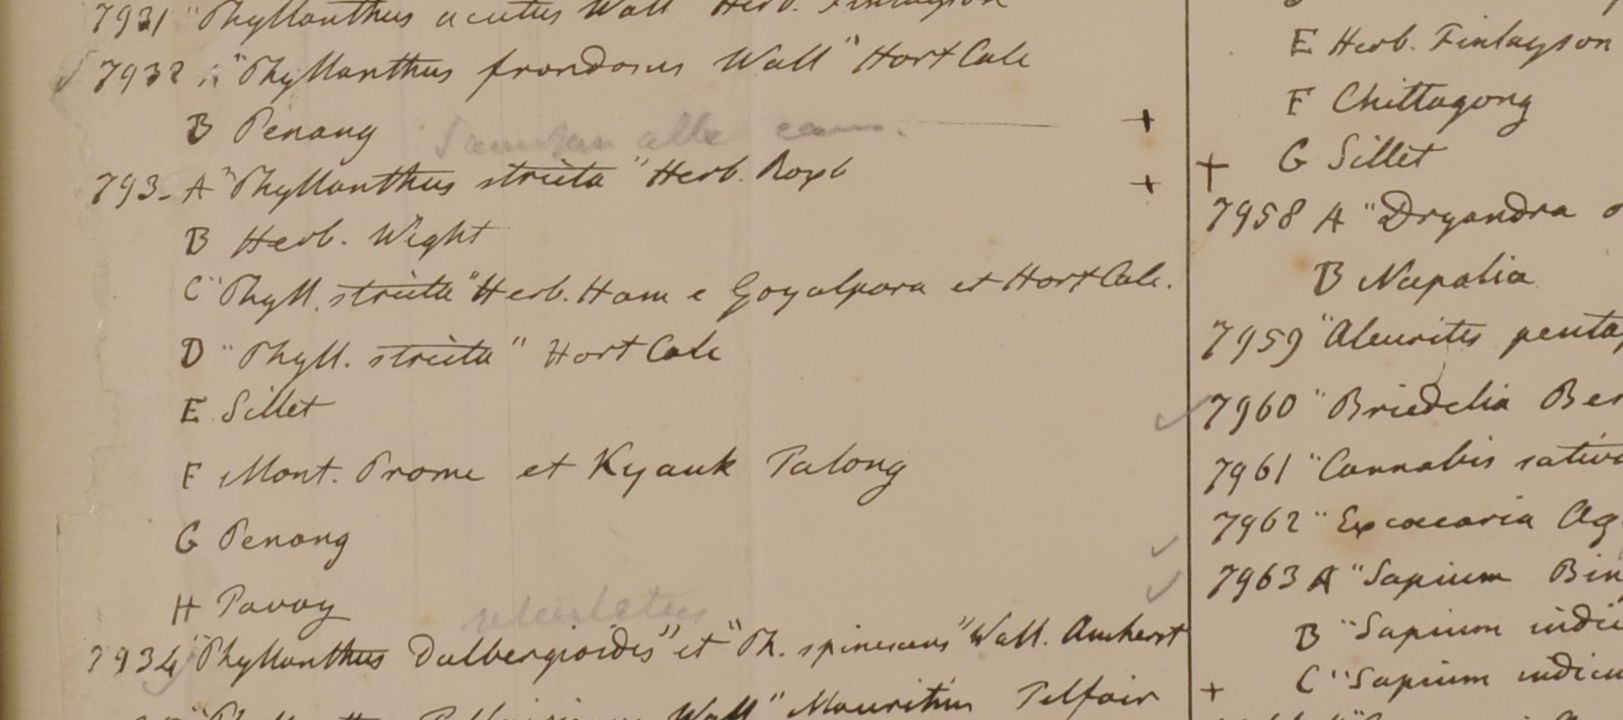 7931 "Phyllanthus acutus Wall Herb. Finlayson
7932 "Phyllanthus frondosus Wall" Hort Calc
B Penang
793- A "Phyllanthus stricta" Herb. Roxb
B Herb. Wight
C "Phyll. stricta" Herb. Ham e Goyalpara et Hort Calc.
D "Phyll. stricta" Hort Calc
E Sillet
F Mont. Prome et Kyauk Talong
G Penang
H Tavoy
7934 "Phyllanthus Dalbergioides" et "Ph. spinescens" Wall. Amherst
Wall" Mauritius Telfair
E Herb. Finlayson
F Chittagong
+ G Sillet
7958 A "Dryandra
B Napalia
7959 "Aleurites penta
7960 "Briedelia Be
7961 "Cannabis sativa
7962 "Excoecaria Ag
7963 A "Sapium Bin
B "Sapium indic
+ C "Sapium indicu